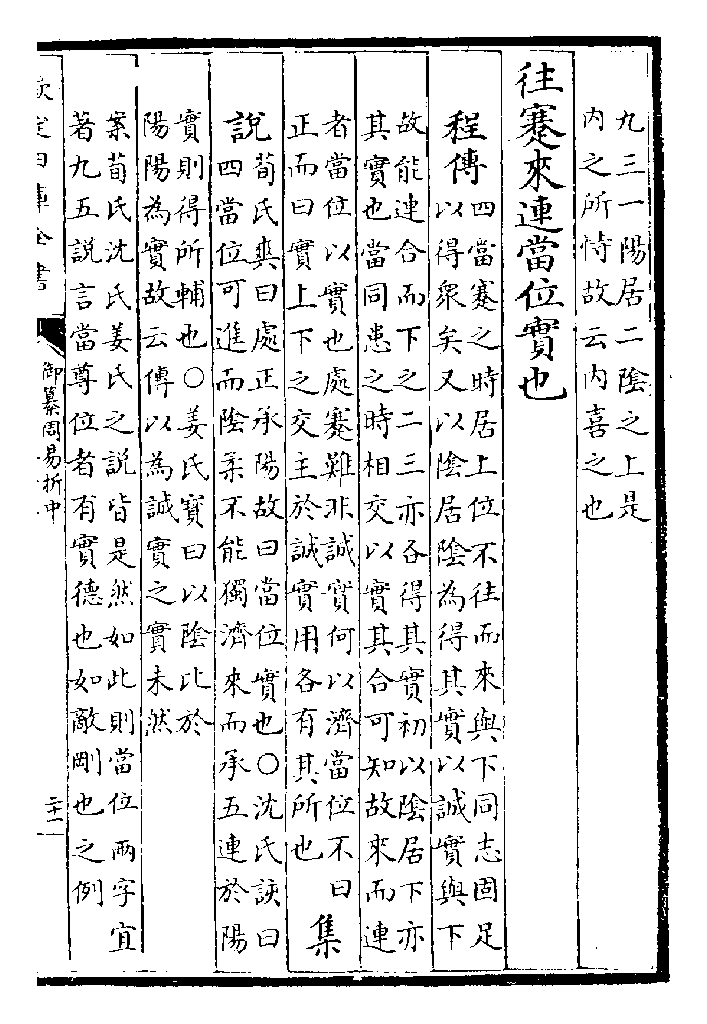 九三一陽居二陰之上是
内之所恃故云内喜之也
往蹇來連當位實也
程傳
四當蹇之時居上位不往而來與下同志固足
以得衆矣又以陰居陰為得其實以誠實與下
故能連合而下之二三亦各得其實初以陰居下亦
其實也當同患之時相交以實其合可知故來而連
者當位以實也處蹇難非誠實何以濟當位不曰
正而曰實上下之交主於誠實用各有其所也
集
說
荀氏爽曰處正承陽故曰當位實也○沈氏該曰
四當位可進而陰柔不能獨濟來而承五連於陽
實則得所輔也○姜氏寶曰以陰比於
陽陽為實故云傳以為誠實之實未然
案荀氏沈氏姜氏之說皆是然如此則當位兩字宜
著九五說言當尊位者有實德也如敵剛也之例
欽定四庫全書
御纂周易折中
二十二